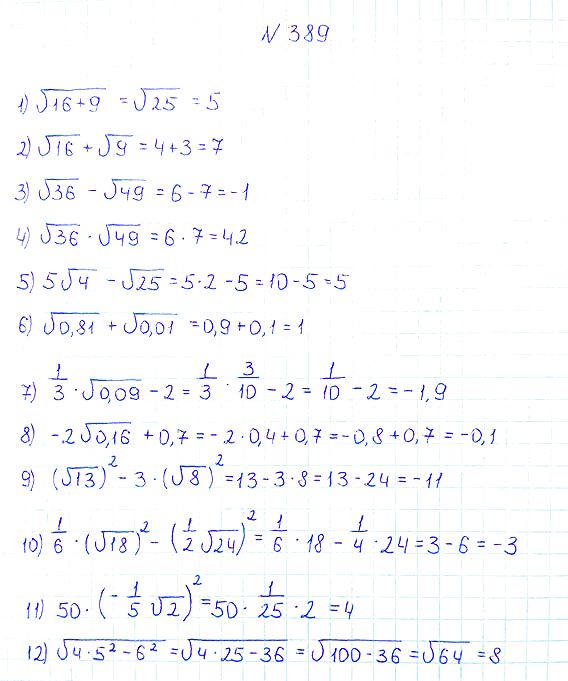 № 389
1) √(16+9) = √25 = 5
2) √16 + √9 = 4+3 = 7
3) √36 - √49 = 6 - 7 = -1
4) √36 · √49 = 6 · 7 = 42
5) 5√4 - √25 = 5·2 - 5 = 10 - 5 = 5
6) √0,81 + √0,01 = 0,9 + 0,1 = 1
7) 1/3 · √0,09 - 2 = 1/3 · 3/10 - 2 = 1/10 - 2 = -1,9
8) -2√0,16 + 0,7 = -2·0,4 + 0,7 = -0,8 + 0,7 = -0,1
9) (√13)² - 3·(√8)² = 13 - 3·8 = 13 - 24 = -11
10) 1/6 · (√18)² - (1/2 √24)² = 1/6 · 18 - 1/4 · 24 = 3 - 6 = -3
11) 50 · (-1/5 √2)² = 50 · 1/25 · 2 = 4
12) √(4·5² - 6²) = √(4·25 - 36) = √(100 - 36) = √64 = 8